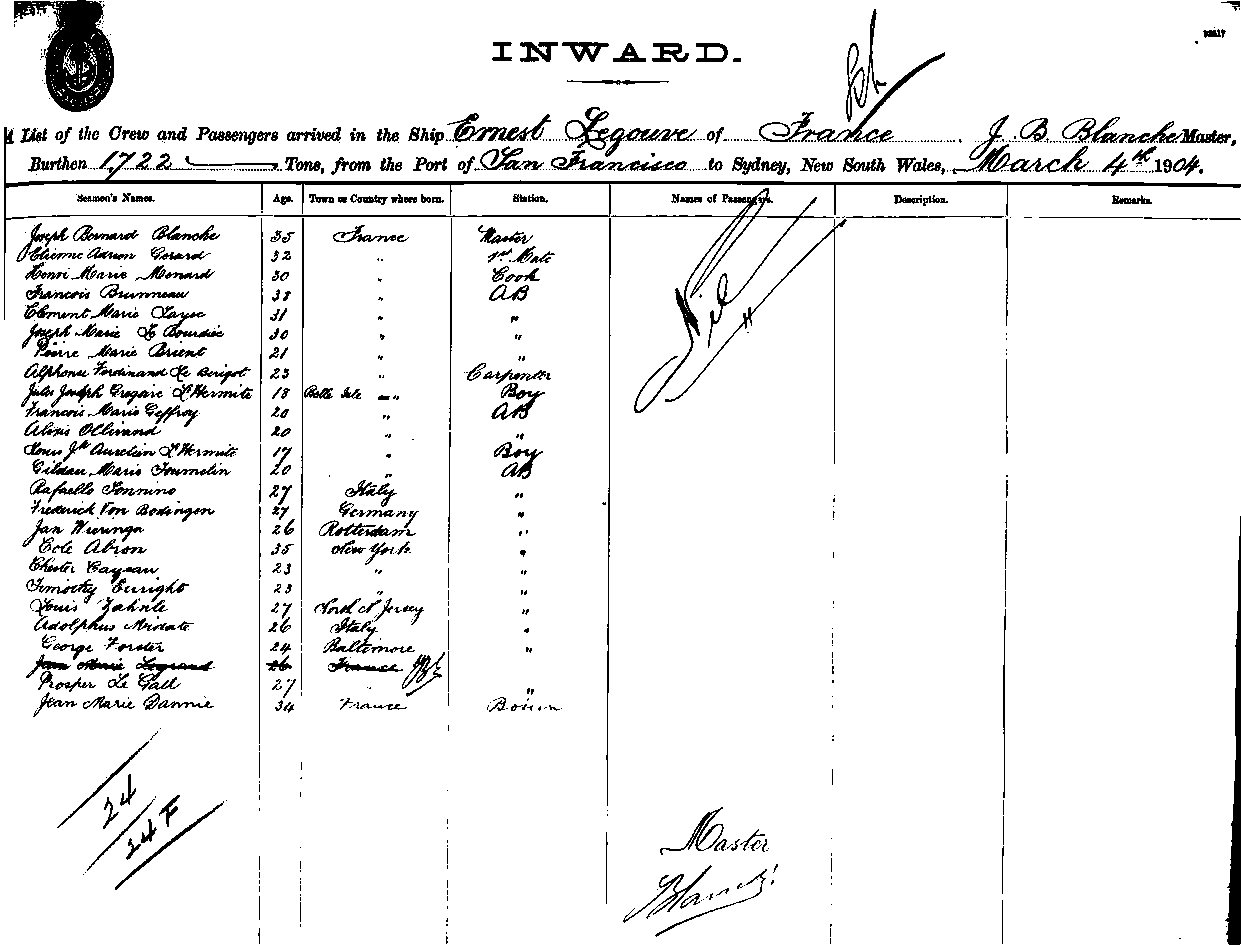 INWARD.
A List of the Crew and Passengers arrived in the Ship Ernest Legouve of France J. B. Blanche Master,
Burthen 1722 Tons, from the Port of San Francisco to Sydney, New South Wales, March 4th 1904.
Seamen's Names. Age. Town or Country where born. Station. Names of Passengers. Description. Remarks.
Joseph Bernard Blanche 35 France Master
Etienne Aaron Gerard 32 " 1st Mate
Henri Marie Menard 30 " Cook
Francois Brunneau 38 " AB
Clement Marie 31 " "
Joseph Marie Le Bourdiec 30 " "
Pierre Marie Brient 21 " "
Alphonse Ferdinand Le Berigot 23 " Carpenter
Jules Joseph Gregaire L'Hermite 18 Belle Isle " Boy
Francois Marie Geffroy 20 " AB
Alexis Ollivand 20 " "
Louis Jh Aurelein L'Hermite 17 " Boy
Gildau Marie Toumelin 20 " AB
Rafaello Sonnino 27 Italy "
Frederick Von Bodingen 27 Germany "
Jan Wieringa 26 Rotterdam "
Cole Abron 35 New York "
Chester Cayeau 23 " "
Timothy Enright 23 " "
Louis Zahnle 27 North N Jersey "
Adolphus Midate 26 Italy "
George Forster 24 Baltimore "
Jean Marie Legrand 26 France
Prosper Le Gall 27 " "
Jean Marie Dannie 34 France Bosun
Nil
24
24 F
Master
Blanche